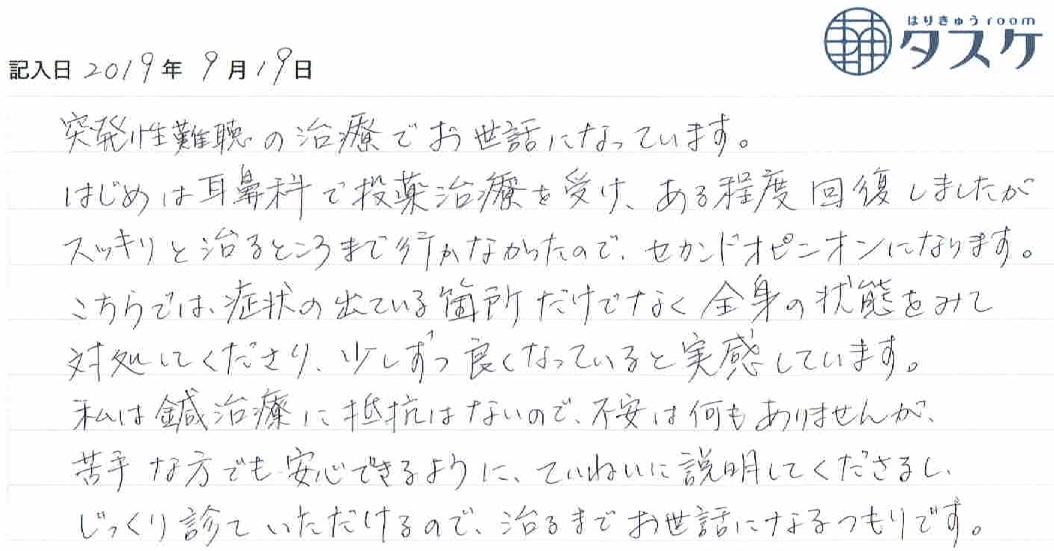 はりきゅうroom
タスケ
記入日 2019年 9月19日
突発性難聴の治療でお世話になっています。
はじめは耳鼻科で投薬治療を受け、ある程度回復しましたが
スッキリと治るところまで行かなかったので、セカンドオピニオンになります。
こちらでは、症状の出ている箇所だけでなく全身の状態をみて
対処してくださり、少しずつ良くなっていると実感しています。
私は鍼治療に抵抗はないので、不安は何もありませんが、
苦手な方でも安心できるように、ていねいに説明してくださるし、
じっくり診ていただけるので、治るまでお世話になるつもりです。